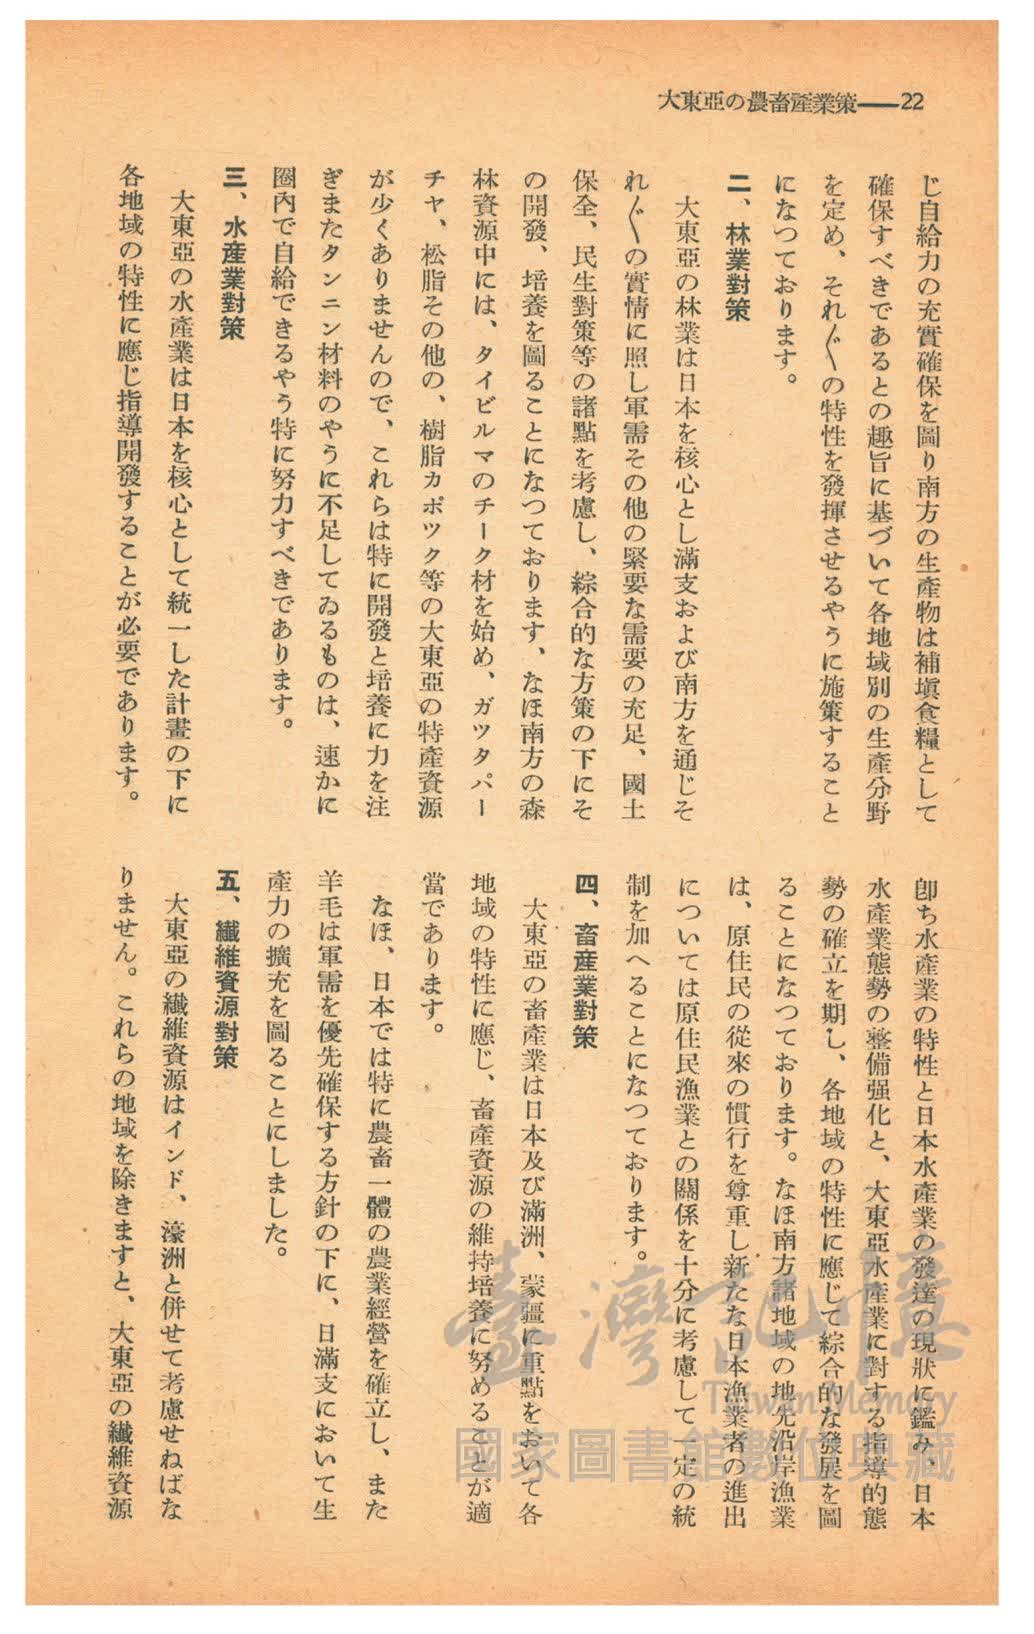 大東亞の農畜産業策――22
じ自給力の充實確保を圖り南方の生產物は補塡食糧として
確保すべきであるとの趣旨に基づいて各地域別の生產分野
を定め、それ〲の特性を發揮させるやうに施策すること
になつております。
二、林業對策
大東亞の林業は日本を核心とし滿支および南方を通じそ
れ〲の實情に照し軍需その他の緊要な需要の充足、國土
保全、民生對策等の諸點を考慮し、綜合的な方策の下にそ
の開發、培養を圖ることになつております、なほ南方の森
林資源中には、タイビルマのチーク材を始め、ガツタパー
チヤ、松脂その他の、樹脂カポツク等の大東亞の特產資源
が少くありませんので、これらは特に開發と培養に力を注
ぎまたタンニン材料のやうに不足してゐるものは、速かに
圈內で自給できるやう特に努力すべきであります。
三、水產業對策
大東亞の水產業は日本を核心として統一した計畫の下に
各地域の特性に應じ指導開發することが必要であります。
卽ち水產業の特性と日本水產業の發達の現狀に鑑み、日本
水產業態勢の整備强化と、大東亞水產業に對する指導的態
勢の確立を期し、各地域の特性に應じて綜合的な發展を圖
ることになつております。なほ南方諸地域の地先沿岸漁業
は、原住民の從來の慣行を尊重し新たな日本漁業者の進出
については原住民漁業との關係を十分に考慮して一定の統
制を加へることになつております。
四、畜產業對策
大東亞の畜產業は日本及び滿洲、蒙疆に重點をおいて各
地域の特性に應じ、畜產資源の維持培養に努めることが適
當であります。
なほ、日本では特に農畜一體の農業經營を確立し、また
羊毛は軍需を優先確保する方針の下に、日滿支において生
產力の擴充を圖ることにしました。
五、纖維資源對策
大東亞の纖維資源はインド、濠洲と併せて考慮せねばな
りません。これらの地域を除きますと、大東亞の纖維資源
臺灣記憶
Taiwan Memory
國家圖書館數位典藏